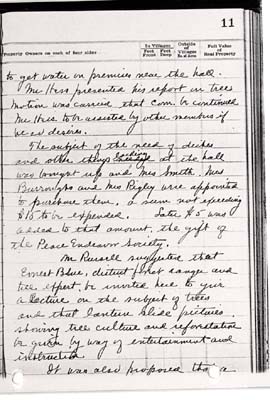 11
Property Owners on each of four sides
In Villages
Feet Front
Feet Deep
Outside of Villages
No. of Acres
Full Value of Real Property
to get water on premises near the hall.
Mr Hess presented his report on trees
Motion was carried that Com. be continued
Mr Hess to be assisted by other members if
he so desires.
The subject of the need of dishes
and other things at the hall
was brought up and Mrs Smith, Mrs
Burroughs and Mrs Rigley were appointed
to purchase them, a sum not exceeding
$15 to be expended. Later $5 was
added to that amount, the gift of
the Peace Endeavor Society.
Mr Russell suggested that
Ernest Blue, district forest ranger and
tree expert, be invited here to give
a lecture on the subject of trees
and that lantern slide pictures
showing tree culture and reforestation
be given by way of entertainment and
instruction
It was also proposed that a